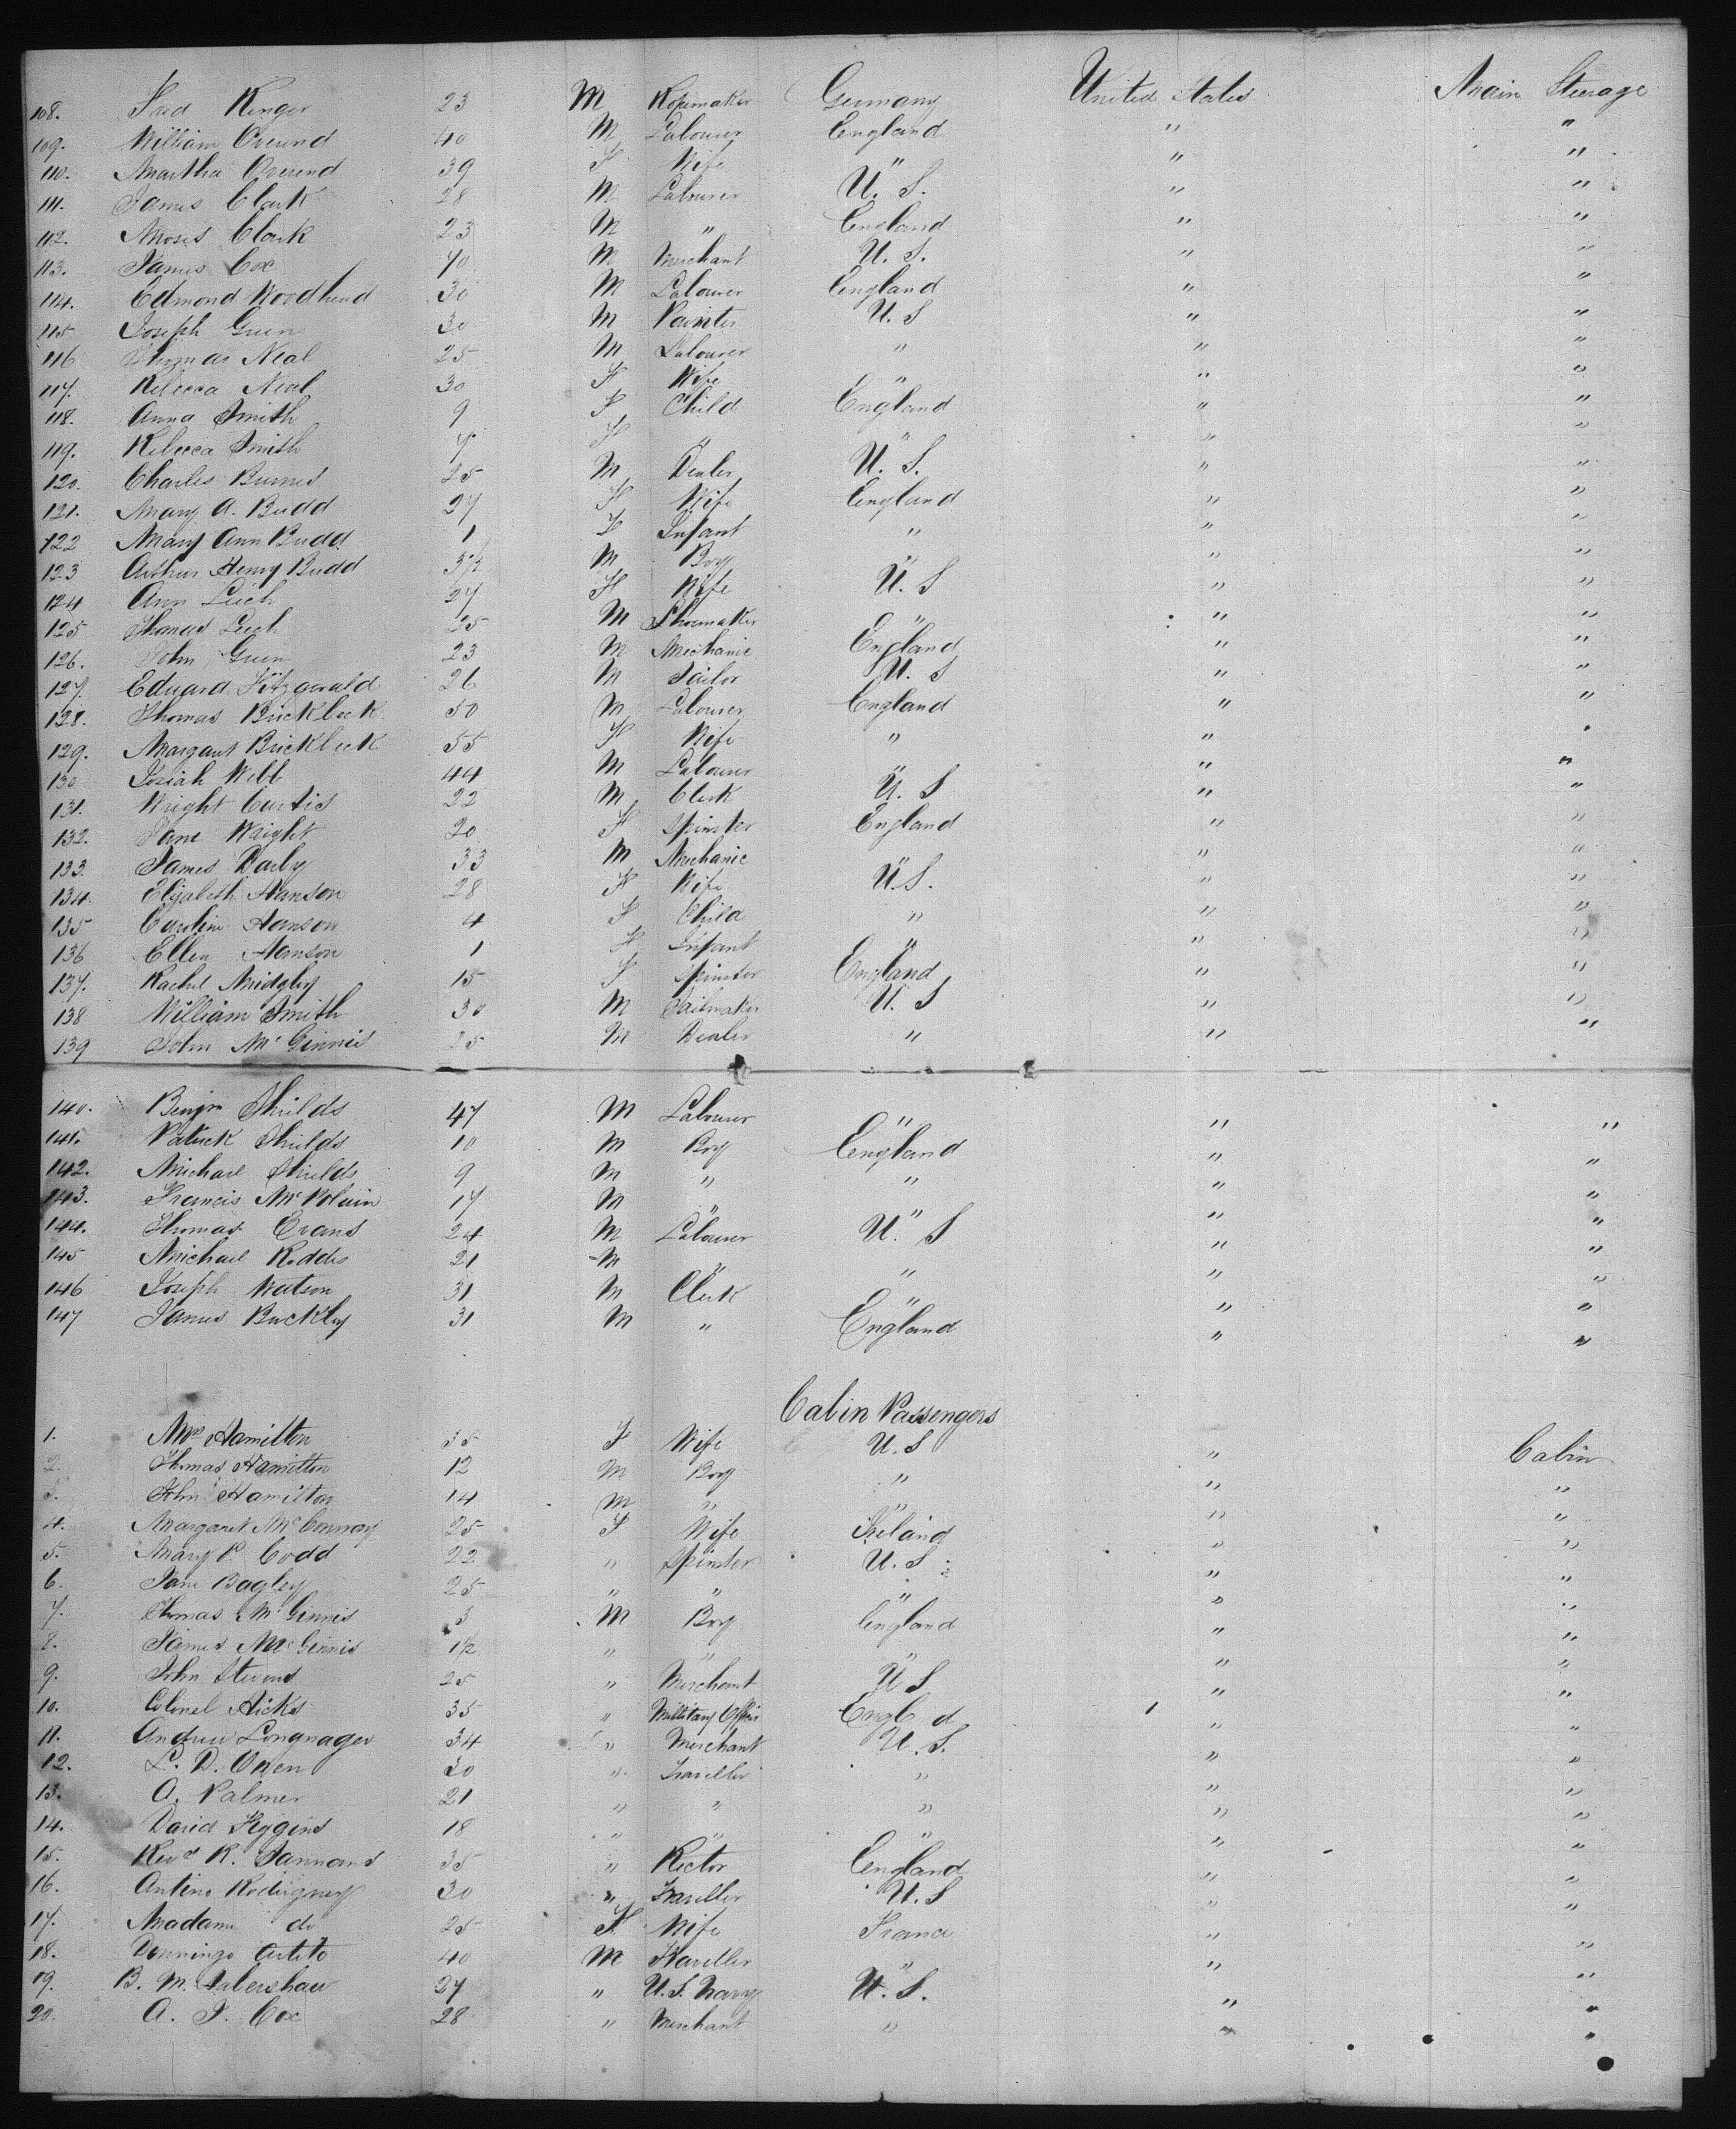 108. Fred Kinger 23 M Ropemaker Germany United States Main Steerage
109. William Overend 40 M Labourer England " "
110. Martha Overend 39 F Wife " " "
111. James Clark 28 M Labourer U. S. " "
112. Moses Clark 23 M " England " "
113. James Cox 40 M Merchant U. S. " "
114. Edmond Woodhead 30 M Labourer England " "
115 Joseph Green 30 M Painter U. S " "
116 Thomas Neal 25 M Labourer " " "
117. Rebecca Neal 30 F Wife " " "
118. Anna Smith 9 F Child England " "
119. Rebecca Smith 7 F " " " "
120. Charles Burnes 25 M Dealer U. S. " "
121. Mary A. Budd 27 F Wife England " "
122 Mary Ann Budd 1 F Infant " " "
123 Arthur Henry Budd 3½ M Boy " " "
124 Ann Leech 27 F Wife U. S " "
125 Thomas Leech 25 M Shoemaker " " "
126. John Green 23 M Mechanic England " "
127. Edward Fitzgerald 26 M Sailor U. S " "
128. Thomas Brickbeck 50 M Labourer England " "
129. Margaret Brickbeck 55 F Wife " " "
130 Josiah Webb 44 M Labourer " " "
131. Wright Curtis 22 M Clerk U. S " "
132. Jane Wright 20 F Spinster England " "
133. James Darby 33 M Mechanic " " "
134. Elizabeth Hanson 28 F Wife U.S. " "
135 Caroline Hanson 4 F Child " " "
136 Ellen Hanson 1 F Infant " " "
137. Rachel Midgley 15 F Spinster England " "
138 William Smith 30 M Sailmaker U. S " "
139 John McGinnis 25 M Dealer " " "
140. Benjm Shields 47 M Labourer " " "
141. Patrick Shields 10 M Boy England " "
142. Michael Shields 9 M " " " "
143. Francis 17 M " " " "
144. Thomas Evans 24 M Labourer U. S " "
145 Michael Roddis 21 M " " " "
146 Joseph Watson 31 M Clerk " " "
147 James Buckley 31 M " England " "
Cabin Passengers
1. Mrs Hamilton 35 F Wife U. S " Cabin
2. Thomas Hamilton 12 M Boy " " "
3. John Hamilton 14 M " " " "
4. Margaret McConway 25 F Wife Ireland " "
5. Mary P. Codd 22 " Spinster U. S " "
6. Jane Bagley 25 " " " " "
7. Thomas McGinnis 3 M Boy England " "
8. James McGinnis 1½ " " " " "
9. John Stevens 25 " Merchant U S " "
10. Colonel Hicks 35 " Military Officer Engl d " "
11. Andrew Longnager 34 " Merchant U. S. " "
12. L. D. Owen 30 " Traveller " " "
13. A. Palmer 21 " " " " "
14. David Higgins 18 " " " " "
15. Revd R. 35 " Rector England " "
16. Rodriguez 30 " Traveller U. S " "
17. Madame do 25 F Wife France " "
18. Domingo 40 M Traveller " " "
19. B. M. Habershaw 27 " U. S. Navy U. S. " "
20. A. F. Cox 28 " Merchant " " "